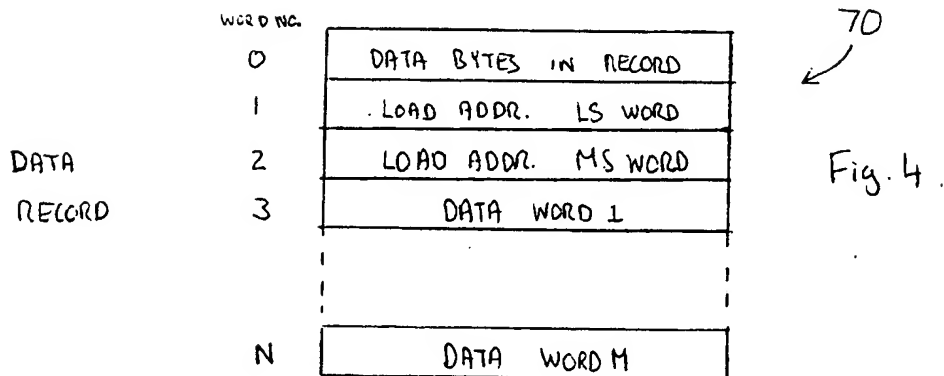 WORD NO.
70
0 DATA BYTES IN RECORD
1 LOAD ADDR. LS WORD
DATA 2 LOAD ADDR. MS WORD
Fig. 4.
RECORD 3 DATA WORD 1
N DATA WORD M